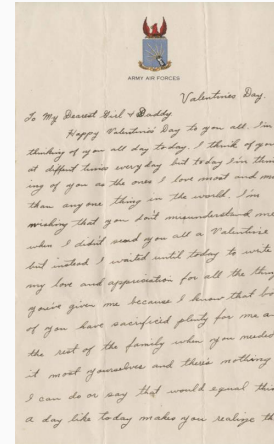 ARMY AIR FORCES
Valentines Day.
To My Dearest Girl & Daddy
Happy Valentines' Day to you all. I'm
thinking of you all day today. I think of you
at diffent times everyday but today I'm think
ing of you as the ones I love most and more
than anyone thing in the world. I'm
wishing that you don't misunderstand me
when I didn't send you all a Valentine
but instead I waited until today to write
my love and appreciation for all the things
you've given me because I know that both
of you have sacrificed plenty for me and
the rest of the family when you needed
it most yourselves and there's nothing
I can do or say that would equal this
a day like today makes you realize th